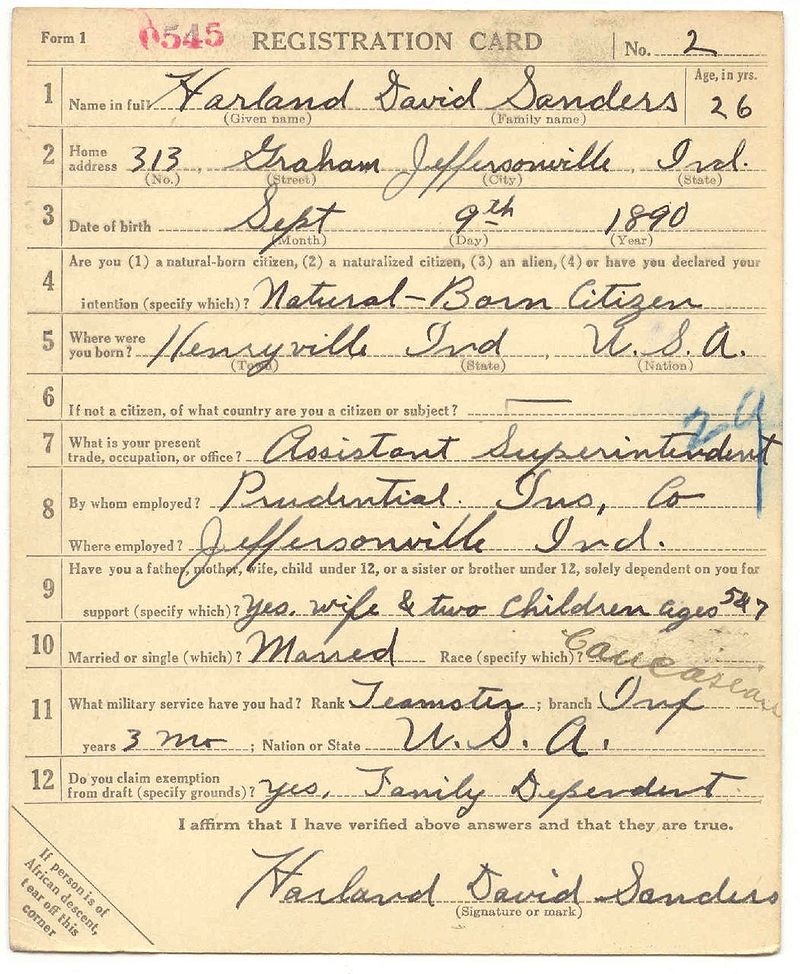 Form 1 0545 REGISTRATION CARD No. 2
1 Name in full Harland David Sanders Age, in yrs. 26
(Given name) (Family name)
2 Home address 313 Graham Jeffersonville, Ind.
(No.) (Street) (City) (State)
3 Date of birth Sept 9th 1890
(Month) (Day) (Year)
4 Are you (1) a natural-born citizen, (2) a naturalized citizen, (3) an alien, (4) or have you declared your
intention (specify which)? Natural-Born Citizen
5 Where were you born? Henryville Ind, U.S.A.
(Town) (State) (Nation)
6 If not a citizen, of what country are you a citizen or subject? —
29
7 What is your present trade, occupation, or office? Assistant Superintendent
8 By whom employed? Prudential. Ins, Co
Where employed? Jeffersonville Ind.
9 Have you a father, mother, wife, child under 12, or a sister or brother under 12, solely dependent on you for
support (specify which)? Yes. wife & two children ages 5&7
10 Married or single (which)? Marred Race (specify which)? Caucasian
11 What military service have you had? Rank Teamster; branch Inf
years 3 mo; Nation or State U.S.A.
12 Do you claim exemption from draft (specify grounds)? yes, Family Dependent
I affirm that I have verified above answers and that they are true.
Harland David Sanders
(Signature or mark)
If person is of
African descent,
tear off this
corner